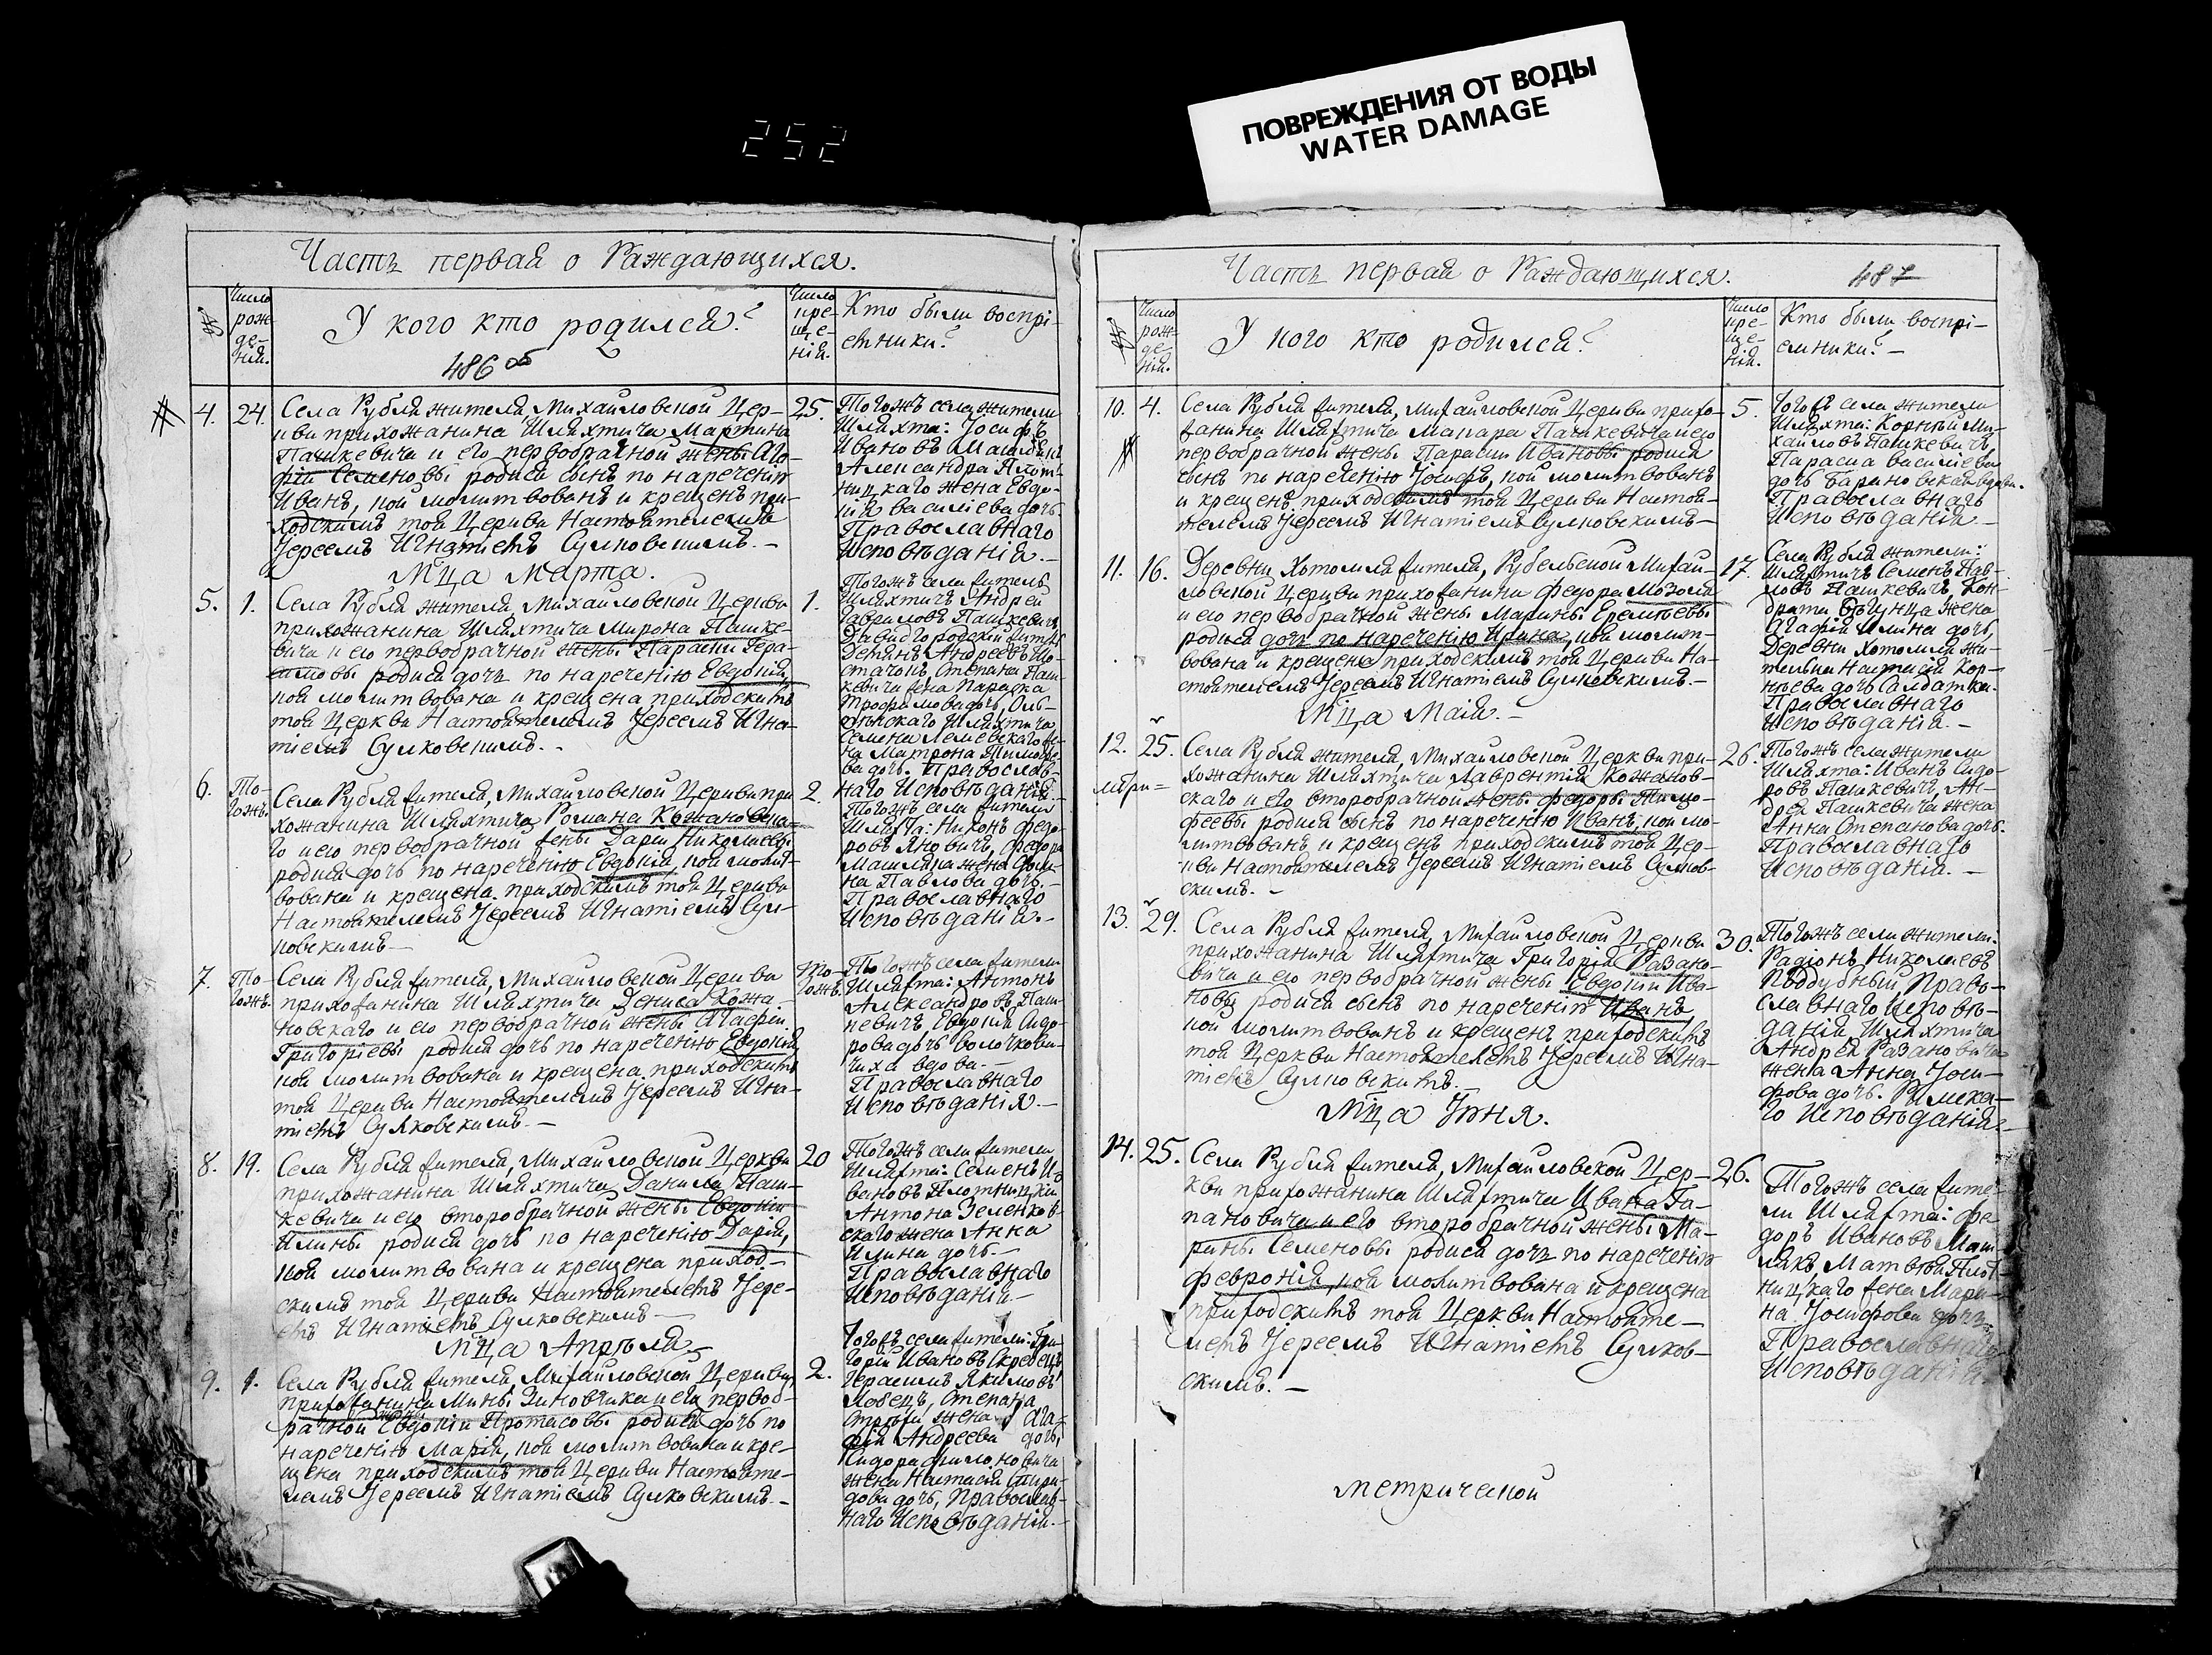 252
ПОВРЕЖДЕНИЯ ОТ ВОДЫ
WATER DAMAGE
Часть первая о Раждающихся.
№
Число
рож-
де-
нія.
У кого кто родился?
486 об
Число
кре-
ще-
нія.
Кто были воспрі-
емники?
4.
24.
Села Рубля жителя, Михайловской Цер-
кви прихожанина Шляхтича Мартина
Пашкевича и его первобрачной жены Ага-
фіи Семеновы родися сынъ по нареченію
Иванъ, кой молитвованъ и крещенъ при-
ходскимъ той Церкви Настоятелемъ
Іереемъ Игнатіемъ Сулковскимъ. -
25.
Тогожъ села жители
Шляхта: Іосифъ
Ивановъ
Александра Плот-
ницкаго жена Евдо-
кія Василіева дочь
Православнаго
Исповѣданія. -
Мца Марта.
5.
1.
Села Рубля жителя, Михайловской Церкви
прихожанина Шляхтича Мирона Пашке-
вича и его первобрачной жены Параскы Гера-
симовы родися дочь по нареченію Евдокія,
коя молитвована и крещена приходскимъ
той Церкви Настоятелемъ Іереемъ Игна-
тіемъ Сулковскимъ. -
1.
Тогожъ села житель
Шляхтичъ Андрей
Гавриловъ Пашкевичъ,
Давидгородскій
Андреевъ
Степана Паш-
кевича жена Параска
Трофимова дочь, Оль-
Шляхтича
Семена же-
на Матрона Тимофѣе-
ва дочь. Православ-
наго Исповѣданія. -
6.
То-
гожъ.
Села Рубля жителя, Михайловской Церкви при
хожанина Шляхтича Романа Кожановска-
го и его первобрачной жены Даріи Николаевы
родися дочь по нареченію Евдокія, коя молит-
вована и крещена приходскимъ той Церкви
Настоятелемъ Іереемъ Игнатіемъ Сул-
ковскимъ -
2.
Тогожъ села жители
Шляхта: Никонъ Федо-
ровъ Яновичъ, Федора
жена
на Павлова дочь. -
Православнаго
Исповѣданія. -
7.
То-
гожъ.
Села Рубля жителя, Михайловской Церкви
прихожанина Шляхтича Дениса Кожа-
новскаго и его первобрачной жены Агафіи
Григоріевы родися дочь по нареченію Евдокія,
коя молитвована и крещена приходскимъ
той Церкви Настоятелемъ Іереемъ Игна-
тіемъ Сулковскимъ. -
То-
гожъ.
Тогожъ села жители
Шляхта: Антонъ
Александровъ Паш-
кевичъ, Евдокія Сидо-
рова дочь Волочкови-
чиха вдова.
Православнаго
Исповѣданія. -
8.
19.
Села Рубля жителя, Михайловской Церкви
прихожанина Шляхтича Данила Паш-
кевича и его второбрачной жены Евдокіи
Илины родися дочь по нареченію Дарія,
коя молитвована и крещена приход-
скимъ той Церкви Настоятелемъ Іере-
емъ Игнатіемъ Сулковскимъ. -
20
Тогожъ села жители
Шляхта: Семенъ И-
вановъ Плотницкій
Антона Зеленков-
скаго жена Анна
Илина дочь. -
Православнаго
Исповѣданія. -
Мца Апрѣля. -
9.
1.
Села Рубля жителя Михайловской Церкви
прихожанина Мины Зиновчика и его первоб-
рачной жены Евдокіи Протасовы родися дочь по
нареченію Марія, коя молитвована и кре-
щена приходскимъ той Церкви Настояте-
лемъ Іереемъ Игнатіемъ Сулковскимъ. -
2.
Тогожъ села жители: Гри-
горій Ивановъ Скребецъ
Герасимъ Якимовъ
Степана
жена Ага-
фія Андреева дочь,
Сидора Филоновича
жена Настасія Спири-
дова дочь, Православ-
наго Исповѣданія. -
Часть первая о Раждающихся.
487
№
Число
рож-
де-
нія.
У кого кто родился?
Число
кре-
ще-
нія.
Кто были воспрі-
емники? -
10.
4.
Села Рубля жителя, Михайловской Церкви прихо-
жанина Шляхтича Макара Пашкевича и его
первобрачной жены Параски Ивановы родися
сынъ по нареченію Іосифъ, кой молитвованъ
и крещенъ приходскимъ той Церкви Настоя-
телемъ Іереемъ Игнатіемъ Сулковскимъ -
5.
Тогожъ села жители
Шляхта: Корній Ми-
хайловъ Пашкевичъ,
Параска Василіева
дочь Барановская вдова.
Православнаго
Исповѣданія -
11.
16.
Деревни Хотомля жителя, Рубельской Михай-
ловской Церкви прихожанина Федора Мозоля
и его первобрачной жены Марины Еремѣевы
родися дочь по нареченію Ирина, коя молит-
вована и крещена приходскимъ той Церкви На-
стоятелемъ Іереемъ Игнатіемъ Сулковскимъ. -
17.
Села Рубля жители:
Шляхтичъ Семенъ Пав-
ловъ Пашкевичъ, Кон-
драта Вѣгунца жена
Агафія Илина дочь,
Деревни Хотомля жи-
тельна Настасія Кор-
нѣева дочь Салдатка.
Православнаго
Исповѣданія. -
Мца Маія. -
12.
25.
Села Рубля жителя, Михайловской Церкви при-
хожанина Шляхтича Лаврентія Кожанов-
скаго и его второбрачной жены Федоры Тимо-
феевы родися сынъ по нареченію Иванъ, кой мо-
литвованъ и крещенъ приходскимъ той Цер-
кви Настоятелемъ Іереемъ Игнатіемъ Сулков-
скимъ. -
26.
Тогожъ села жители
Шляхта: Иванъ Сидо-
ровъ Пашкевичъ, Ан-
дрея Пашкевича жена
Анна Степанова дочь.
Православнаго
Исповѣданія. -
13.
29.
Села Рубля жителя, Михайловской Церкви
прихожанина Шляхтича Григорія Разано-
вича и его первобрачной жены Евдокіи Ива-
новы родися сынъ по нареченію Иванъ
кой молитвованъ и крещенъ приходскимъ
той Церкви Настоятелемъ Іереемъ Игна-
тіемъ Сулковскимъ. -
30.
Тогожъ села жители:
Радіонъ Николаевъ
Поддубный Право-
славнаго Исповѣ-
данія, Шляхтича
Андрея Разановича
жена Анна Іоси-
фова дочь. Римска-
го Исповѣданія. -
Мца Іюня.
14.
25.
Села Рубля жителя, Михайловской Цер-
кви прихожанина Шляхтича Ивана Га-
пановича и его второбрачной жены Ма-
рины Семеновы родися дочь по нареченію
Февронія, коя молитвована и крещена
приходскимъ той Церкви Настояте-
лемъ Іереемъ Игнатіемъ Сулков-
скимъ. -
26.
Тогожъ села жите-
ли Шляхта: Фе
доръ Ивановъ Маш-
лякъ Матвѣя Плот-
ницкаго жена Мари-
на Іосифова дочь
Православнаго
Исповѣданія
метрической